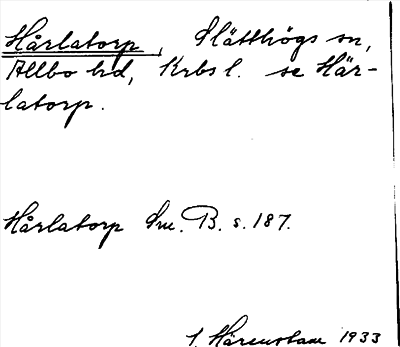 Hårlatorp, Slätthögs sn,
Allbo hd, Krbs l. se Här-
latorp.
Hårlatorp Sm. B. s. 187.
1933